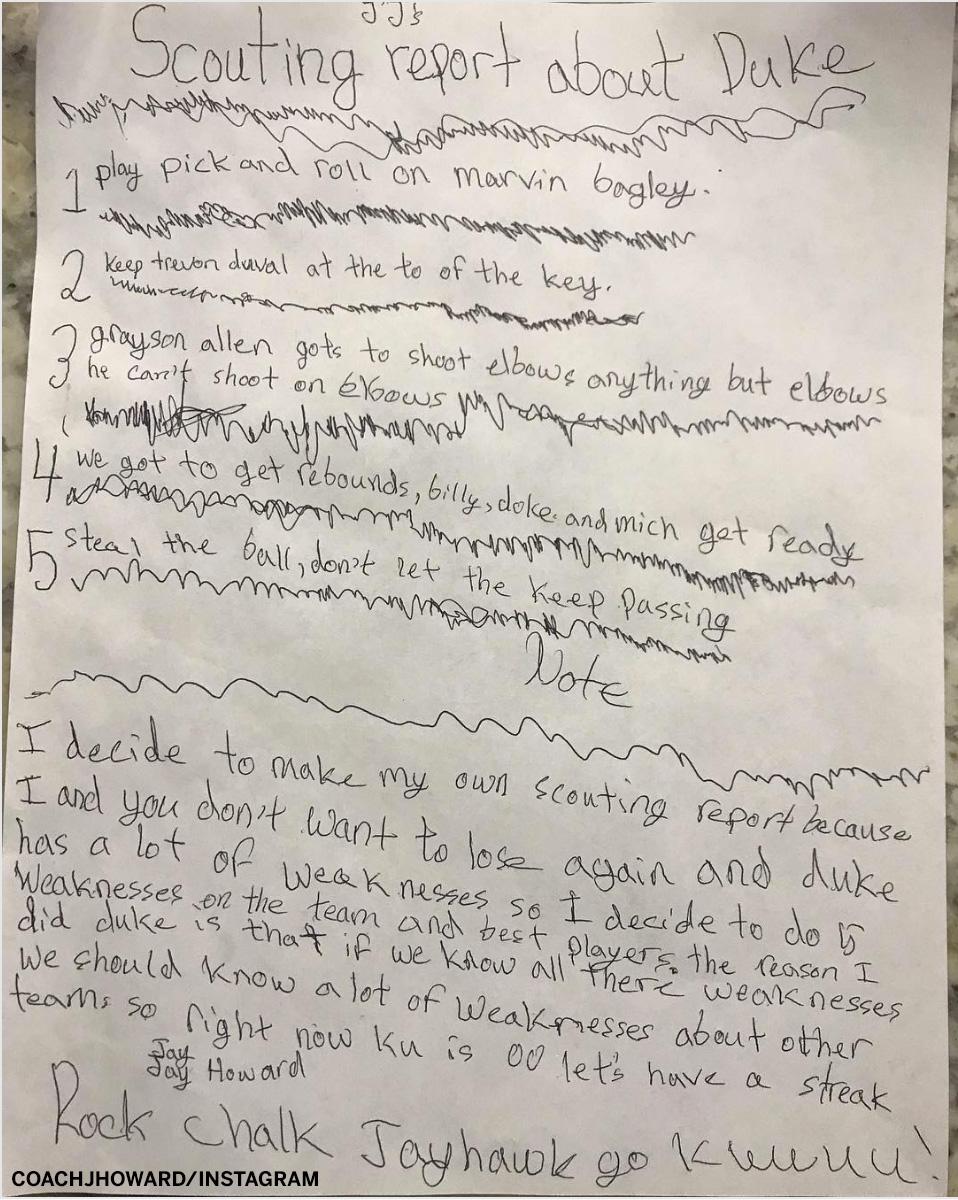 JJ's
Scouting report about Duke
1 play pick and roll on marvin bagley.
2 keep trevon duval at the to of the key.
3 grayson allen gots to shoot elbows anything but elbows
he can't shoot on elbows
4 we got to get rebounds, billy, doke and mich get ready
5 steal the ball, don't let the keep passing
Note
I decide to make my own scouting report because
I and you don't want to lose again and duke
has a lot of weaknesses so I decide to do 5
weaknesses on the team and best players. the reason I
did duke is that if we know all there weaknesses
we should know a lot of weaknesses about other
teams so right now Ku is 00 let's have a streak
Jay
Jay Howard
Rock chalk Jayhawk go Kuuuu!
COACHJHOWARD/INSTAGRAM